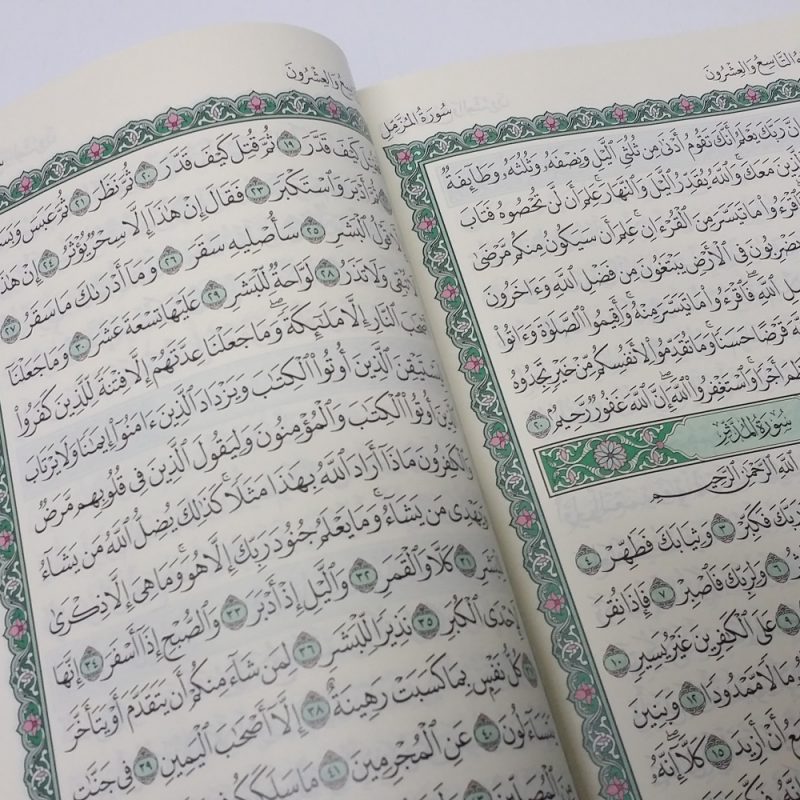 التَّاسِعُ وَالعِشْرُونَ
سُورَةُ المُزَّمِّل
إِنَّ رَبَّكَ يَعْلَمُ أَنَّكَ تَقُومُ أَدْنَىٰ مِن ثُلُثَيِ ٱلَّيْلِ وَنِصْفَهُۥ وَثُلُثَهُۥ وَطَآئِفَةٌ
مَعَكَ ۚ وَٱللَّهُ يُقَدِّرُ ٱلَّيْلَ وَٱلنَّهَارَ ۚ عَلِمَ أَن لَّن تُحْصُوهُ فَتَابَ
مَا تَيَسَّرَ مِنَ ٱلْقُرْءَانِ ۚ عَلِمَ أَن سَيَكُونُ مِنكُم مَّرْضَىٰ
يَضْرِبُونَ فِى ٱلْأَرْضِ يَبْتَغُونَ مِن فَضْلِ ٱللَّهِ ۙ وَءَاخَرُونَ
ٱللَّهِ ۖ فَٱقْرَءُوا۟ مَا تَيَسَّرَ مِنْهُ ۚ وَأَقِيمُوا۟ ٱلصَّلَوٰةَ وَءَاتُوا۟
قَرْضًا حَسَنًا ۚ وَمَا تُقَدِّمُوا۟ لِأَنفُسِكُم مِّنْ خَيْرٍ تَجِدُوهُ
أَجْرًا ۚ وَٱسْتَغْفِرُوا۟ ٱللَّهَ ۖ إِنَّ ٱللَّهَ غَفُورٌ رَّحِيمٌۢ ٢٠
سُورَةُ المُدَّثِّر
ٱللَّهِ ٱلرَّحْمَٰنِ ٱلرَّحِيمِ
فَكَبِّرْ ٣ وَثِيَابَكَ فَطَهِّرْ ٤
٦ وَلِرَبِّكَ فَٱصْبِرْ ٧ فَإِذَا نُقِرَ
٩ عَلَى ٱلْكَٰفِرِينَ غَيْرُ يَسِيرٍ ١٠
مَالًا مَّمْدُودًا ١٢ وَبَنِينَ
أَنْ أَزِيدَ ١٥ كَلَّآ ۖ إِنَّهُۥ
وَالعِشْرُونَ
كَيْفَ قَدَّرَ ١٩ ثُمَّ قُتِلَ كَيْفَ قَدَّرَ ٢٠ ثُمَّ نَظَرَ ٢١ ثُمَّ عَبَسَ
أَدْبَرَ وَٱسْتَكْبَرَ ٢٣ فَقَالَ إِنْ هَٰذَآ إِلَّا سِحْرٌ يُؤْثَرُ ٢٤ إِنْ هَٰذَآ
قَوْلُ ٱلْبَشَرِ ٢٥ سَأُصْلِيهِ سَقَرَ ٢٦ وَمَآ أَدْرَىٰكَ مَا سَقَرُ ٢٧
تُبْقِى وَلَا تَذَرُ ٢٨ لَوَّاحَةٌ لِّلْبَشَرِ ٢٩ عَلَيْهَا تِسْعَةَ عَشَرَ ٣٠ وَمَا جَعَلْنَآ
ٱلنَّارِ إِلَّا مَلَٰٓئِكَةً ۙ وَمَا جَعَلْنَا عِدَّتَهُمْ إِلَّا فِتْنَةً لِّلَّذِينَ كَفَرُوا۟
لِيَسْتَيْقِنَ ٱلَّذِينَ أُوتُوا۟ ٱلْكِتَٰبَ وَيَزْدَادَ ٱلَّذِينَ ءَامَنُوٓا۟ إِيمَٰنًا ۙ وَلَا يَرْتَابَ
ٱلَّذِينَ أُوتُوا۟ ٱلْكِتَٰبَ وَٱلْمُؤْمِنُونَ ۙ وَلِيَقُولَ ٱلَّذِينَ فِى قُلُوبِهِم مَّرَضٌ
وَٱلْكَٰفِرُونَ مَاذَآ أَرَادَ ٱللَّهُ بِهَٰذَا مَثَلًا ۚ كَذَٰلِكَ يُضِلُّ ٱللَّهُ مَن يَشَآءُ
وَيَهْدِى مَن يَشَآءُ ۚ وَمَا يَعْلَمُ جُنُودَ رَبِّكَ إِلَّا هُوَ ۚ وَمَا هِىَ إِلَّا ذِكْرَىٰ
لِلْبَشَرِ ٣١ كَلَّا وَٱلْقَمَرِ ٣٢ وَٱلَّيْلِ إِذْ أَدْبَرَ ٣٣ وَٱلصُّبْحِ إِذَآ أَسْفَرَ ٣٤ إِنَّهَا
لَإِحْدَى ٱلْكُبَرِ ٣٥ نَذِيرًا لِّلْبَشَرِ ٣٦ لِمَن شَآءَ مِنكُمْ أَن يَتَقَدَّمَ أَوْ يَتَأَخَّرَ
كُلُّ نَفْسٍۭ بِمَا كَسَبَتْ رَهِينَةٌ ٣٨ إِلَّآ أَصْحَٰبَ ٱلْيَمِينِ ٣٩ فِى جَنَّٰتٍ
يَتَسَآءَلُونَ ٤٠ عَنِ ٱلْمُجْرِمِينَ ٤١ مَا سَلَكَكُمْ
ٱلْمُصَلِّينَ